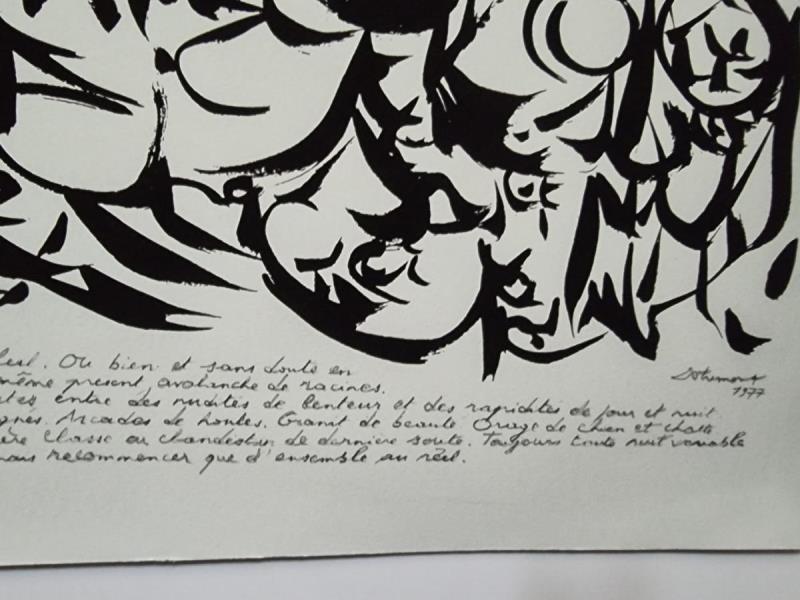 seul. Ou bien et sans doute en
même présent, avalanche de racines.
entre des nudités de lenteur et des rapidités de jour et nuit.
Arcades de hontes. Granit de beauté. Orage de chien et chatte
classe au clandestin de dernière soute. Toujours toute nuit
recommencer que d'ensemble au réel.
1977